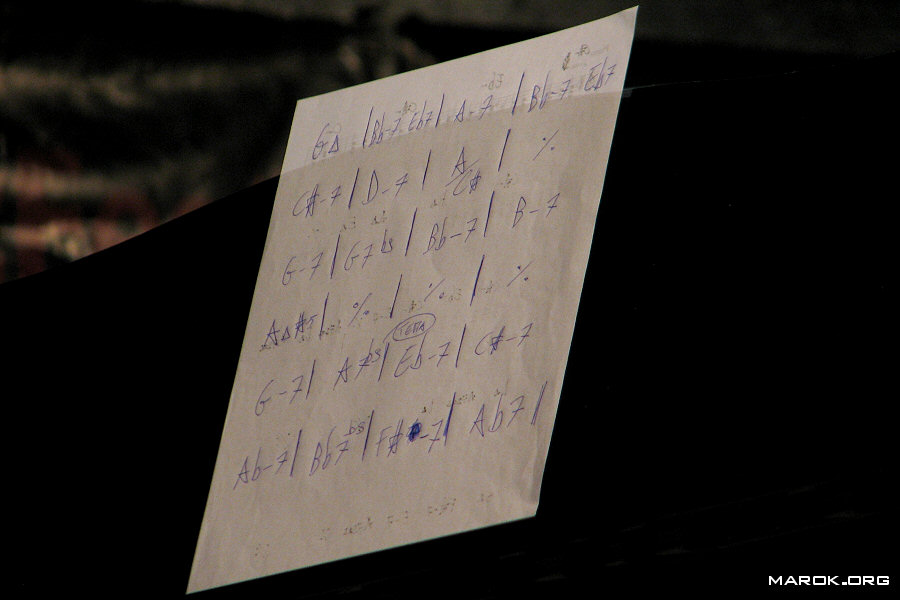 GΔ | Bb-7 Eb7 | A-7 | Bb-7 Eb7
C#-7 | D-7 | A/C# | %
G-7 | G7 b5 | Bb-7 | B-7
AΔ#5 | % | % | %
G-7 | A7b5 | Eb-7 | C#-7
Ab-7 | Bb7 | F#-7 | Ab7 |
MAROK.ORG